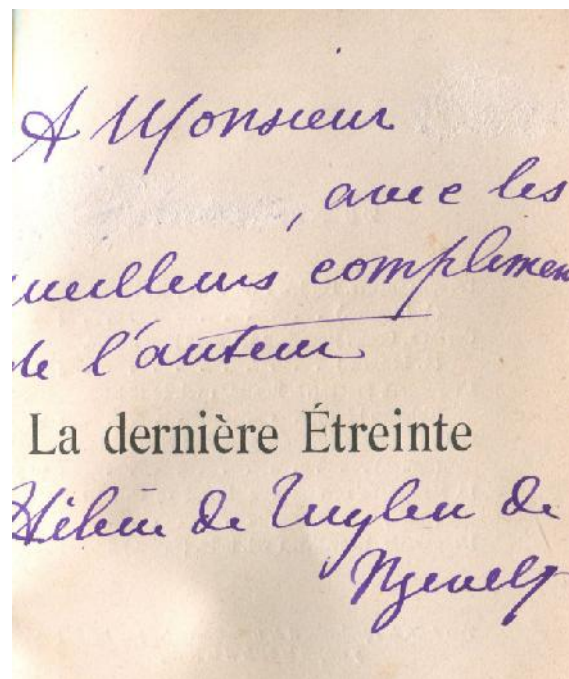 A Monsieur
, avec les
meilleurs complimen
de l'auteur
La dernière Étreinte
Hélène de Zuylen de
Nyevelt